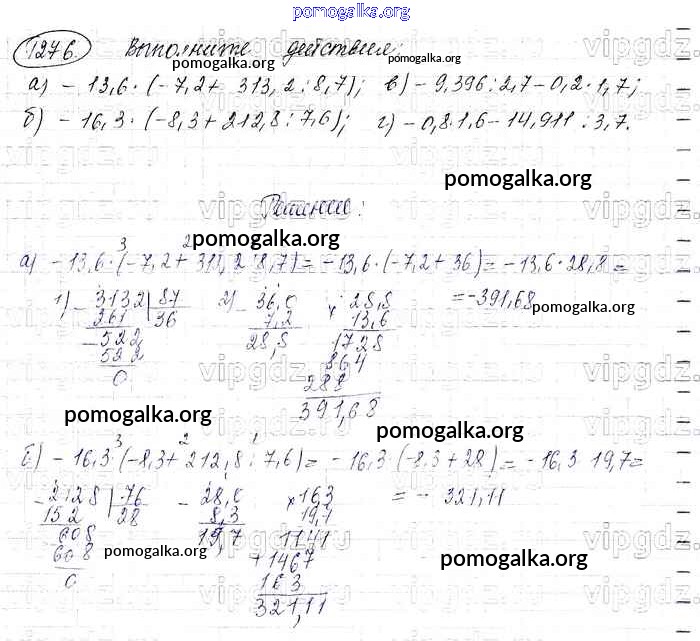 pomogalka.org
1276. Выполните действия:
а) - 13,6 · (-7,2 + 313,2 : 8,7); в) - 9,396 : 2,7 - 0,2 · 1,7;
pomogalka.org pomogalka.org
б) - 16,3 · (-8,3 + 212,8 : 7,6); г) - 0,8 · 1,6 - 14,911 : 3,7.
pomogalka.org
Решение:
3 2 pomogalka.org
а) - 13,6 · (-7,2 + 313,2 : 8,7) = - 13,6 · (-7,2 + 36) = - 13,6 · 28,8 =
1) - 3132 | 87 2) - 36,0 × 28,8 = -391,68 pomogalka.org
261 36 7,2 13,6
- 522 28,8 1728
522 864
0 288
391,68
pomogalka.org pomogalka.org
3 2 1
б) - 16,3 · (-8,3 + 212,8 : 7,6) = - 16,3 (-8,3 + 28) = - 16,3 · 19,7 =
- 2128 | 76 - 28,0 × 16,3 = - 321,11
152 28 8,3 19,7
608 19,7 1141
608 pomogalka.org + 1467 pomogalka.org
0 163
321,11